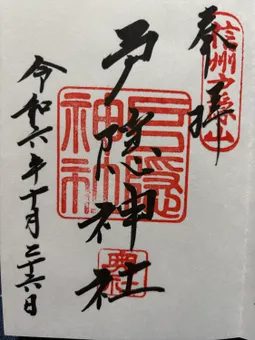 信州戸隠山
奉拝
戸隠神社
戸隠
神社
奥社
令和六年十月二十六日